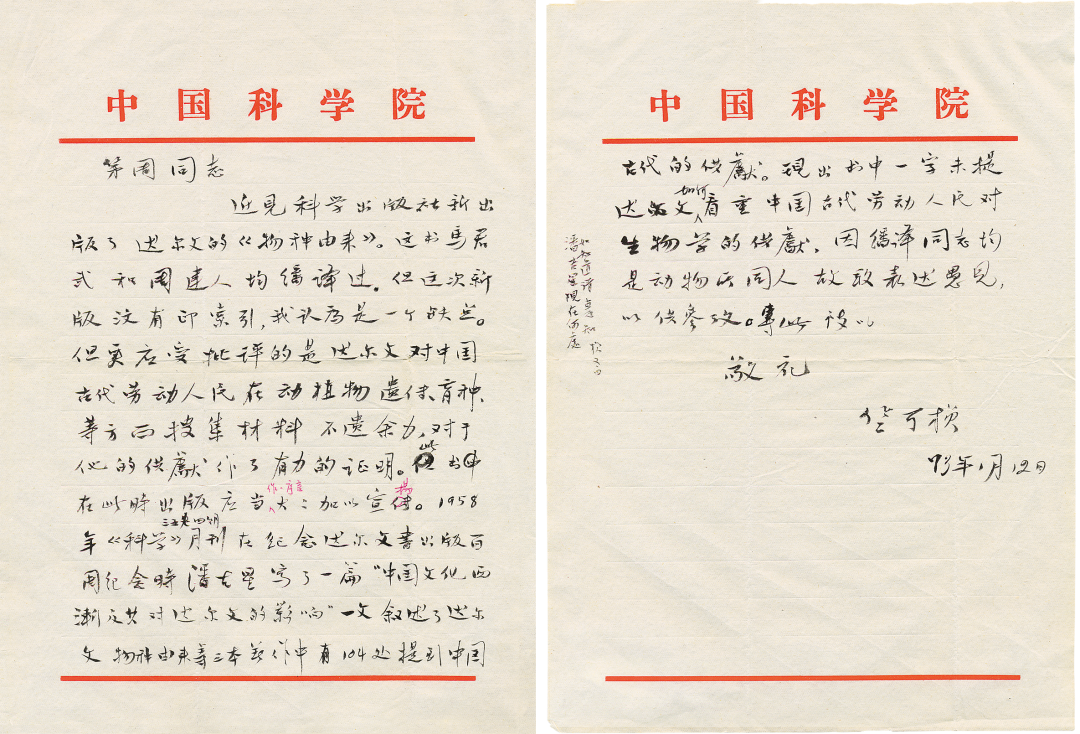 中国科学院
同志
近見科学出版社新出
版了达尔文的《物种由来》。这书馬君
武和周建人均繙译过。但这次新
版没有印索引,我认為是一个缺点。
但更应受批评的是达尔文对中国
古代劳动人民在动植物遗传、育种、
等方面搜集材料不遗余力,对于
他的供獻作了有力的证明。此书
在此時出版应当大：加以宣揚。1958
年《科学》月刊在纪念达尔文書出版百
周纪念時潘吉星写了一篇“中国文化西
漸及其对达尔文的影响”一文叙述了达尔
文物种由来等三本著作中有104处提到中国
中国科学院
古代的供獻。現出书中一字未提
达尔文如何看重中国古代劳动人民对
生物学的供獻,因繙译同志均
是动物所同人故敢表述愚見,
以供参攷。專此 致以
敬礼
竺可桢
73年1月12日
潘吉星現在何處